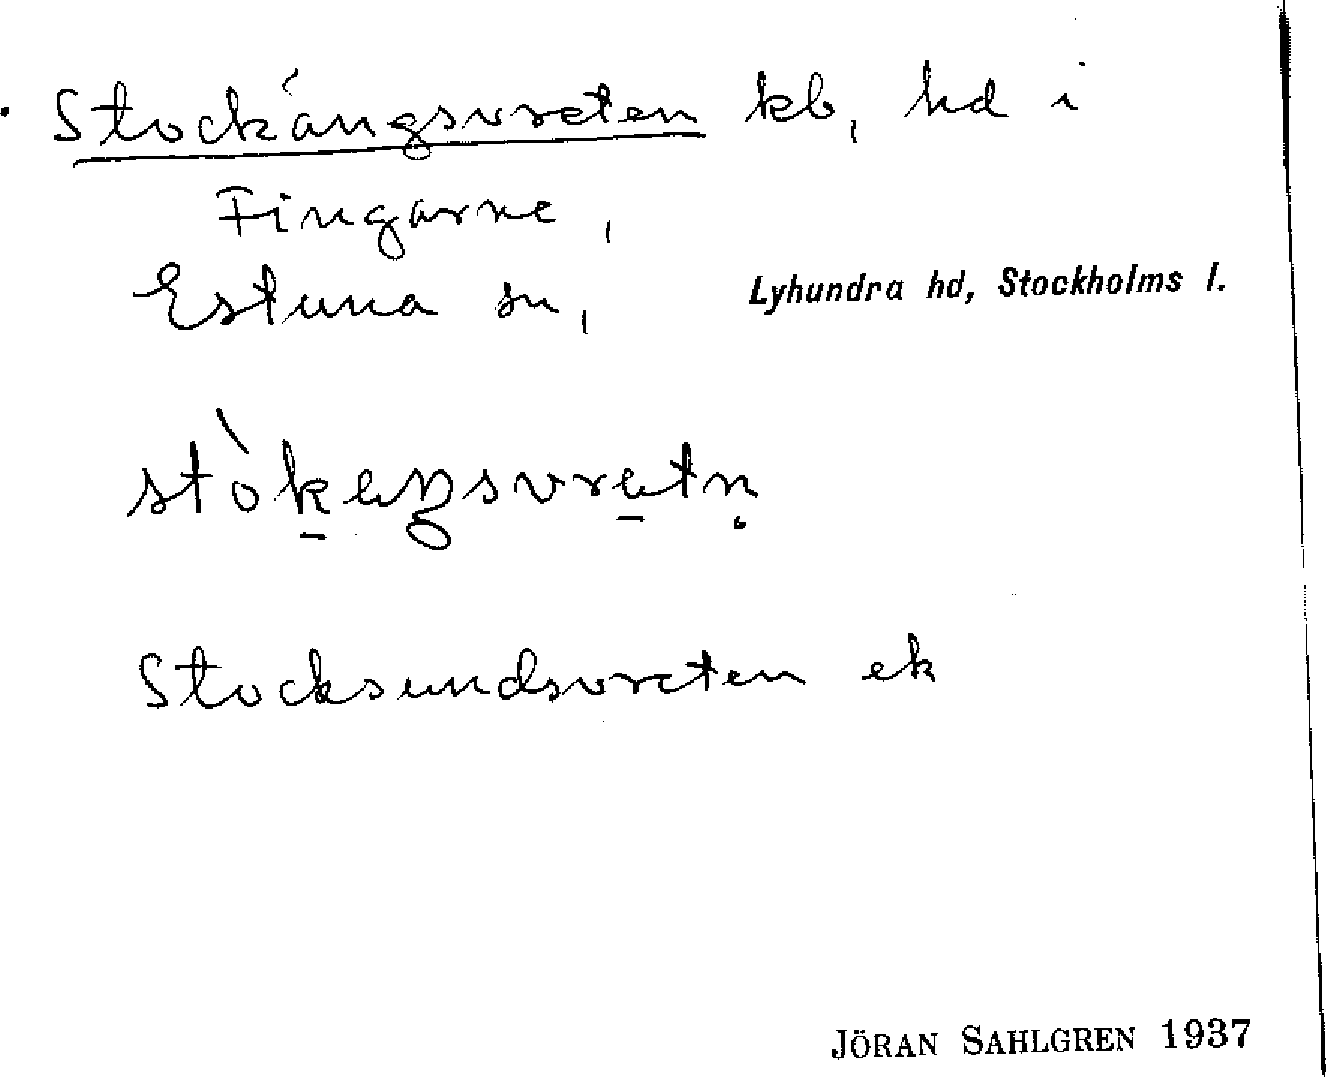 Stockängsvreten kb, hd i
Fingarne,
Estuna sn, Lyhundra hd, Stockholms l.
stòk̠eŋsvre̠tn̥
Stocksundsvreten ek
JÖRAN SAHLGREN 1937